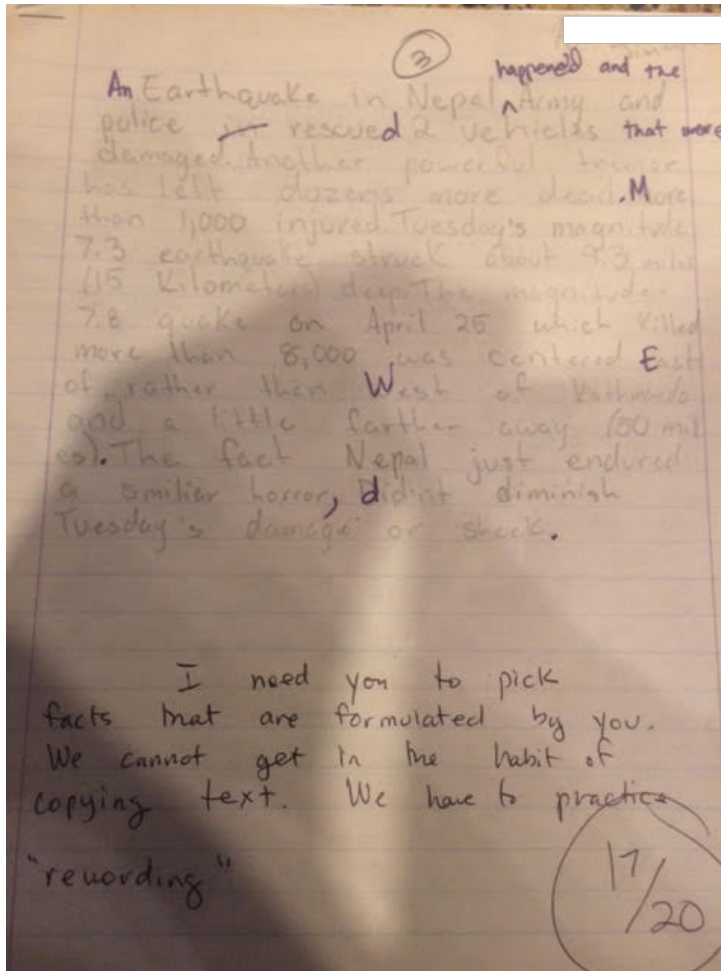 3
happened and the
An Earthquake in Nepal ^ Army and
police rescued 2 vehicles that were
damaged. Another powerful tremor
has left dozens more dead. More
than 1,000 injured. Tuesday's magnitude
7.3 earthquake struck about 9.3 miles
(15 Kilometers) deep. The magnitude
7.8 quake on April 25 which killed
more than 8,000 was centered East
of rather then West of
and a little farther away (50 mil
es). The fact Nepal just endured
a smiliar horror, didint diminish
Tuesday's damage or shock.
I need you to pick
facts that are formulated by you.
We cannot get in the habit of
copying text. We have to practice
"rewording"
17/20